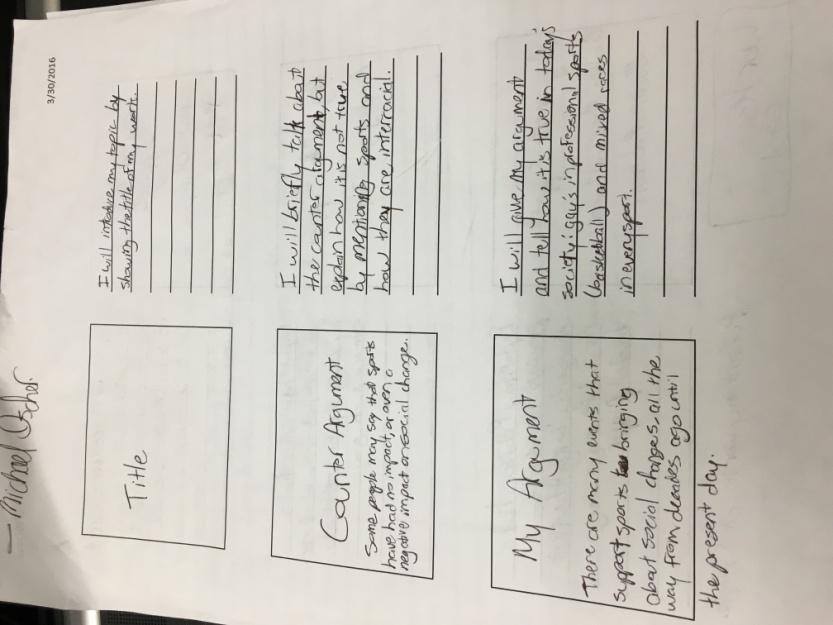 3/30/2016
Michael
Title
I will introduce my topic by
showing the title of my work.
Counter Argument
Some people may say that sports
have had no impact, or even a
negative impact on social change.
I will briefly talk about
the counter argument, but
explain how it is not true
by mentioning sports and
how they are interracial.
My Argument
There are many events that
support sports bringing
about social changes, all the
way from decades ago until
the present day.
I will give my argument
and tell how it is true in today's
society: gay's in professional sports
(basketball) and mixed races
in every sport.